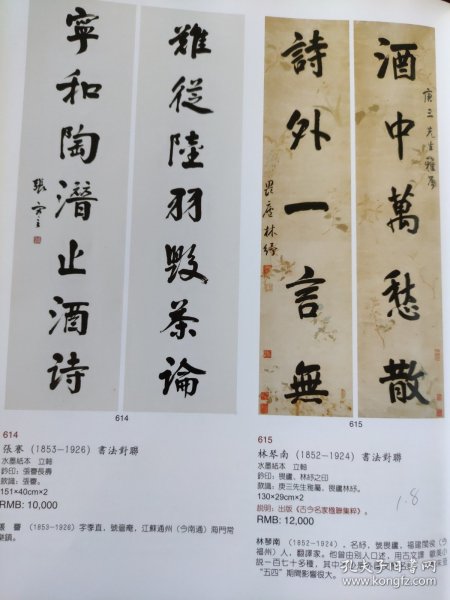 難從陸羽毀茶論
寧和陶潛止酒詩
張謇
614
酒中萬愁散
詩外一言無
庚三先生雅屬
畏廬林紓
615
614
張謇(1853—1926)書法對聯
水墨紙本 立軸
鈐印:張謇長壽
款識:張謇。
151×40cm×2
RMB: 10,000
張 謇 (1853-1926) 字季直,號嗇庵,江蘇通州(今南通)海門常
樂鎮。
615
林琴南(1852—1924)書法對聯
水墨紙本 立軸
鈐印:畏廬、林紓之印
款識:庚三先生雅屬,畏廬林紓。
130×29cm×2
說明:出版《古今名家楹聯集粹》。
RMB: 12,000
1.8
林琴南(1852—1924),名紓,號畏廬,福建閩侯(今
福州)人,翻譯家。他曾由别人口述,用古文譯 歐美小
說一百七十多種,其中
“五四”期間影響很大。
孔夫子旧书网